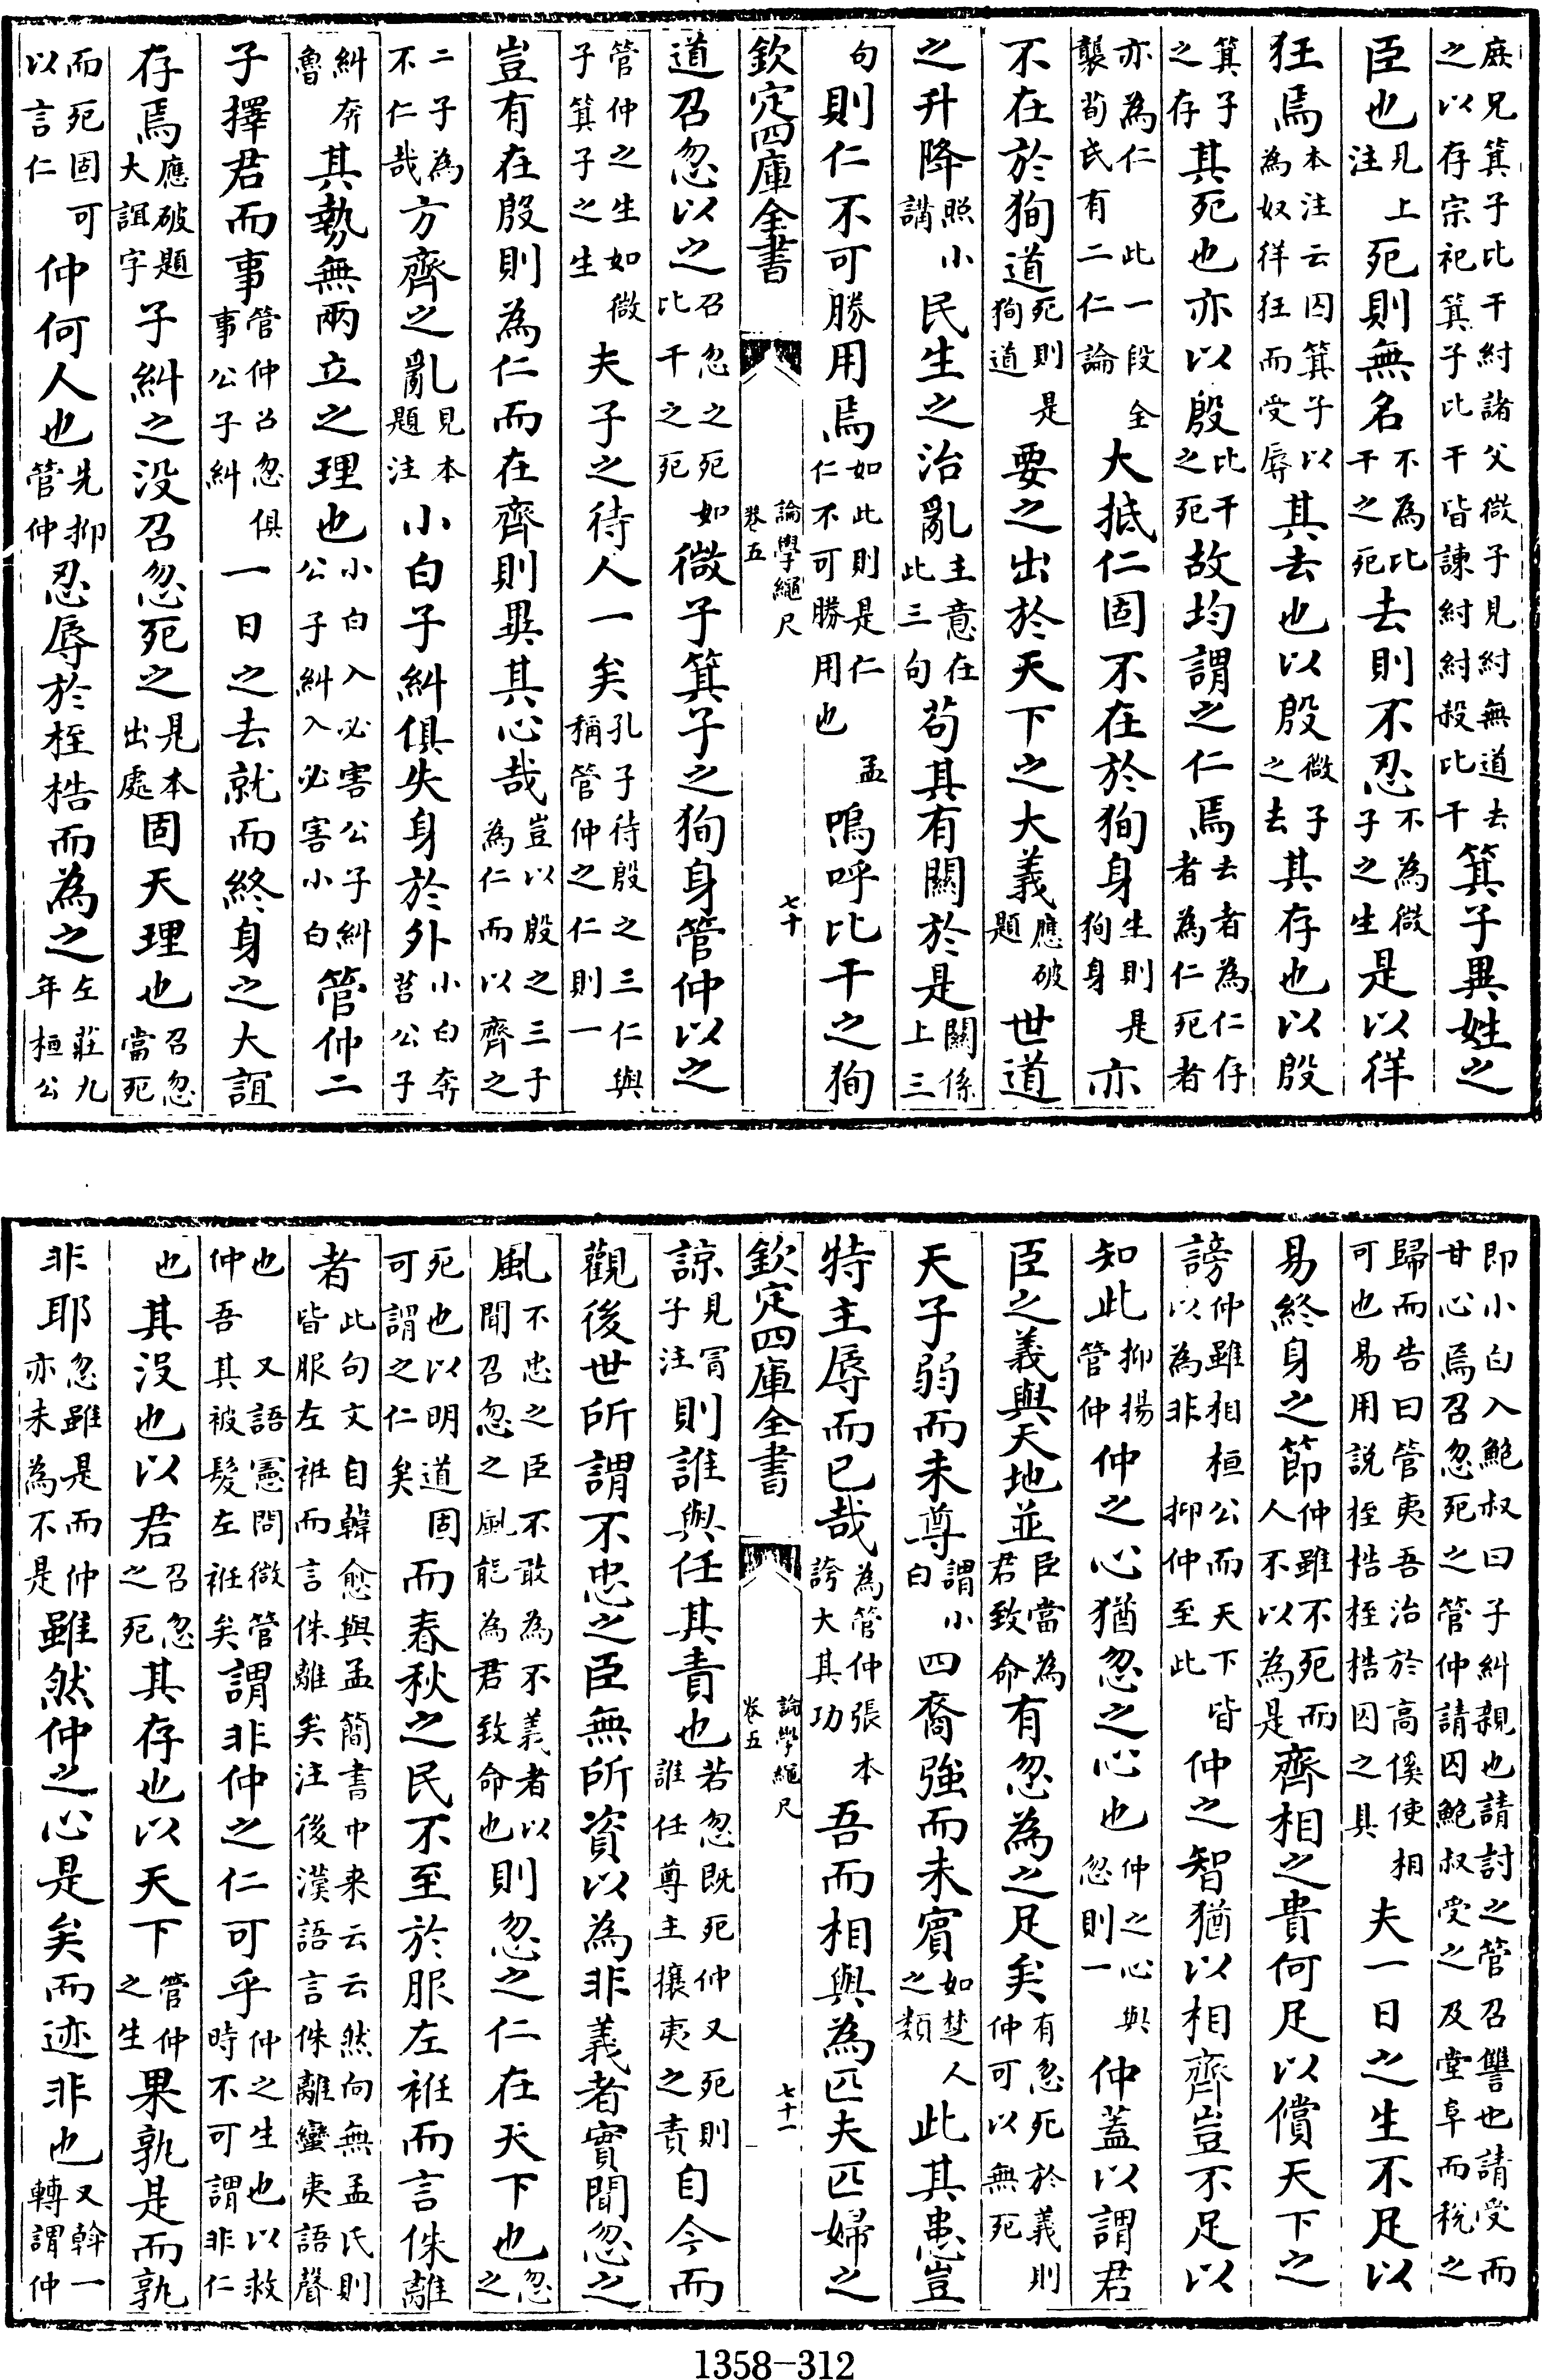 庶兄箕子比干紂諸父微子見紂無道去之以存宗祀箕子比干皆諫紂紂殺比干箕子異姓之
臣也見上注死則無名不為比干之死去則不忍不為微子之生是以徉
狂焉本注云囚箕子以為奴徉狂而受辱其去也以殷微子之去其存也以殷
箕子之存其死也亦以殷比干之死故均謂之仁焉去者為仁存者為仁死者
亦為仁此一段全襲荀氏有二仁論大抵仁固不在於狥身生則是狥身亦
不在於狥道死則是狥道要之出於天下之大義應破題世道
之升降照小講民生之治亂主意在此三句苟其有關於是關係上三
句則仁不可勝用焉如此則是仁孟仁不可勝用也嗚呼比干之狥
欽定四庫全書 論學繩尺 卷五 七十
道召忽以之召忽之死如比干之死微子箕子之狥身管仲以之
管仲之生如微子箕子之生夫子之待人一矣孔子待殷之三仁與稱管仲之仁則一
豈有在殷則為仁而在齊則異其心哉豈以殷之三子為仁而以齊之
二子為不仁哉方齊之亂見本題注小白子糾俱失身於外小白奔莒公子
糾奔魯其勢無兩立之理也小白入必害公子糾公子糾入必害小白管仲二
子擇君而事管仲召忽俱事公子糾一日之去就而終身之大誼
存焉應破題大誼字子糾之没召忽死之見本出處固天理也召忽當死
而死固可以言仁仲何人也先抑管仲忍辱於桎梏而為之左莊九年桓公
即小白入鮑叔曰子糾親也請討之管召讐也請受而甘心焉召忽死之管仲請囚鮑叔受之及堂阜而稅之
歸而告曰管夷吾治於高傒使相可也易用說桎梏桎梏囚之具夫一日之生不足以
易終身之節仲雖不死而人不以為是齊相之貴何足以償天下之
謗仲雖相桓公而天下皆以為非抑仲至此仲之智猶以相齊豈不足以
知此抑揚管仲仲之心猶忽之心也仲之心與忽則一仲蓋以謂君
臣之義與天地並臣當為君致命有忽為之足矣有忽死於義則仲可以無死
天子弱而未尊謂小白四裔強而未賓如楚人之類此其患豈
特主辱而已哉為管仲張本誇大其功吾而相與為匹夫匹婦之
欽定四庫全書 論學繩尺 卷五 七十一
諒見冐子注則誰與任其責也若忽既死仲又死則誰任尊主攘夷之責自今而
觀後世所謂不忠之臣無所資以為非義者實聞忽之
風不忠之臣不敢為不義者以聞召忽之風能為君致命也則忽之仁在天下也忽之
死也以明道固可謂之仁矣而春秋之民不至於服左袵而言侏離
者此句文自韓愈與孟簡書中来云云然向無孟氏則皆服左袵而言侏離矣注後漢語言侏離蠻夷語聲
也又語憲問微管仲吾其被髮左袵矣謂非仲之仁可乎仲之生也以救時不可謂非仁
也其没也以君召忽之死其存也以天下管仲之生果孰是而孰
非耶忽雖是而仲亦未為不是雖然仲之心是矣而迹非也又斡一轉謂仲
1358-312